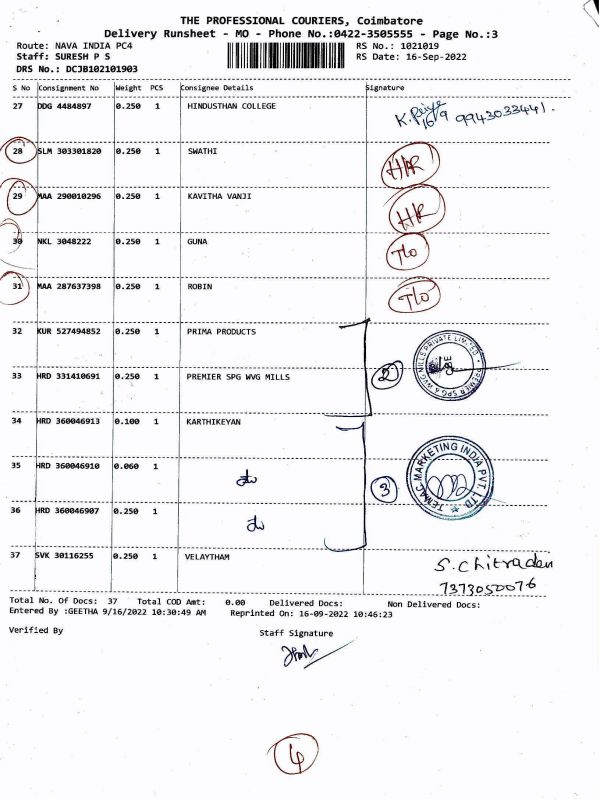 THE PROFESSIONAL COURIERS, Coimbatore
Delivery Runsheet - MO - Phone No.:0422-3505555 - Page No.:3
Route: NAVA INDIA PC4 RS No.: 1021019
Staff: SURESH P S RS Date: 16-Sep-2022
DRS No.: DCJB102101903
S No Consignment No Weight PCS Consignee Details Signature
27 DDG 4484897 0.250 1 HINDUSTHAN COLLEGE 16/9 9943033441.
28 SLM 303301820 0.250 1 SWATHI H/R
29 MAA 290010296 0.250 1 KAVITHA VANJI H/R
30 NKL 3048222 0.250 1 GUNA T/O
31 MAA 287637398 0.250 1 ROBIN T/O
32 KUR 527494852 0.250 1 PRIMA PRODUCTS
33 HRD 331410691 0.250 1 PREMIER SPG WVG MILLS 2 PREMIER SPG & WVG MILLS PRIVATE LIMITED
34 HRD 360046913 0.100 1 KARTHIKEYAN
35 HRD 360046910 0.060 1 3 TEMAC MARKETING INDIA PVT. LTD
36 HRD 360046907 0.250 1
37 SVK 30116255 0.250 1 VELAYTHAM S. Chitradevi
7373050076
Total No. Of Docs: 37 Total COD Amt: 0.00 Delivered Docs: Non Delivered Docs:
Entered By :GEETHA 9/16/2022 10:30:49 AM Reprinted On: 16-09-2022 10:46:23
Verified By Staff Signature
4